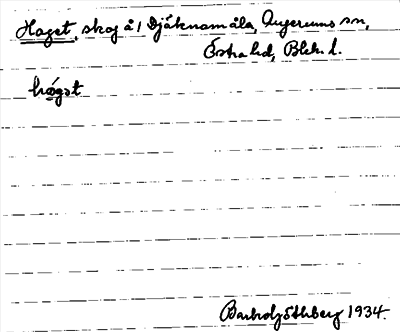 Haget, skog å 1 Djäknamåla, Augerums sn,
Östra hd, Blek. l.
hagət
Bertholdz Öthberg 1934.